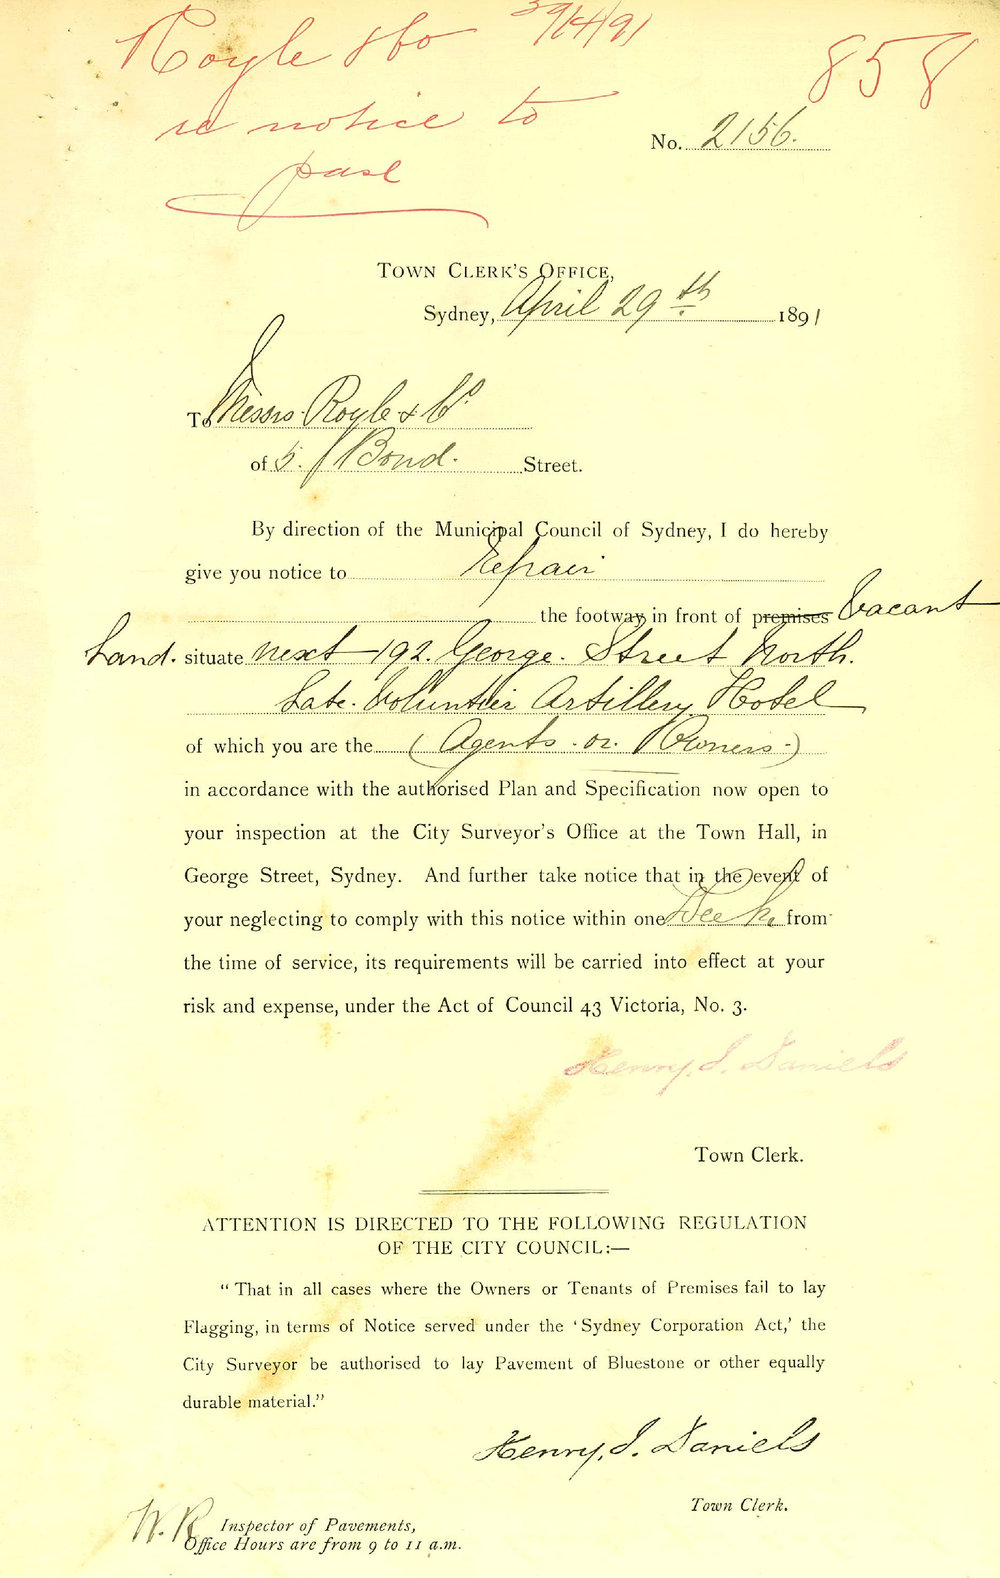 Royle & Co 
858
re notice to
pave
No. 2156.
TOWN CLERK'S OFFICE,
Sydney, April 29th. 1891
To Messrs Royle & Co.
of 5. Bond. Street.
By direction of the Municipal Council of Sydney, I do hereby
give you notice to Repair
the footway in front of premises Vacant
Land. situate next 192. George. Street North.
Late. Volunteer Artillery Hotel
of which you are the (Agents. or. Owners.)
in accordance with the authorised Plan and Specification now open to
your inspection at the City Surveyor's Office at the Town Hall, in
George Street, Sydney. And further take notice that in the event of
your neglecting to comply with this notice within one Week from
the time of service, its requirements will be carried into effect at your
risk and expense, under the Act of Council 43 Victoria, No. 3.
Henry. J. Daniels
Town Clerk.
ATTENTION IS DIRECTED TO THE FOLLOWING REGULATION
OF THE CITY COUNCIL:—
“ That in all cases where the Owners or Tenants of Premises fail to lay
Flagging, in terms of Notice served under the ‘ Sydney Corporation Act,’ the
City Surveyor be authorised to lay Pavement of Bluestone or other equally
durable material.”
Henry. J. Daniels
Town Clerk.
W. R Inspector of Pavements,
Office Hours are from 9 to 11 a.m.